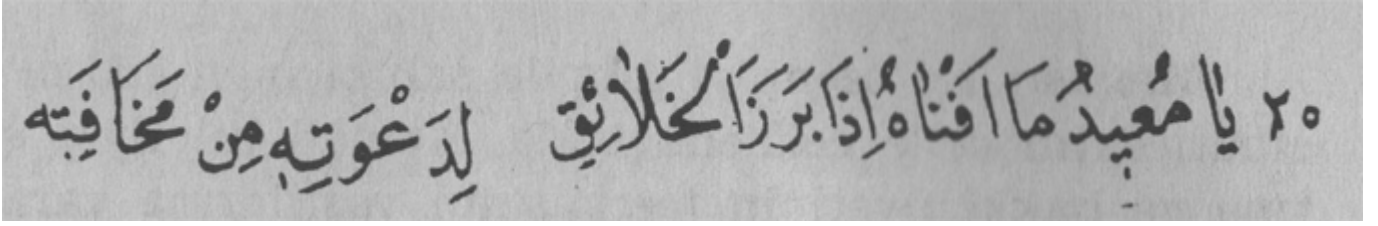 ٢٥ يَا مُعِيدُ مَا اَفْنَاهُ اِذَا بَرَزَ الْخَلَائِقِ لِدَعْوَتِهِ مِنْ مَخَافَتِه